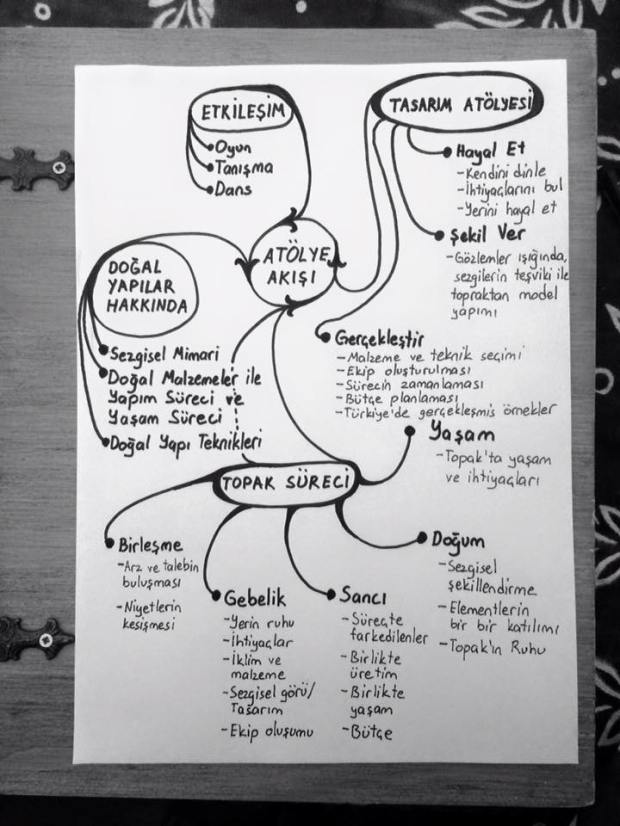 ETKİLEŞİM
Oyun
Tanışma
Dans
TASARIM ATÖLYESİ
Hayal Et
-Kendini dinle
-İhtiyaçlarını bul
-Yerini hayal et
Şekil Ver
-Gözlemler ışığında,
sezgilerin teşviki ile
topraktan model
yapımı
Gerçekleştir
-Malzeme ve teknik seçimi
-Ekip oluşturulması
-Sürecin zamanlaması
-Bütçe planlaması
-Türkiye'de gerçekleşmiş örnekler
ATÖLYE
AKIŞI
DOĞAL
YAPILAR
HAKKINDA
Sezgisel Mimari
Doğal Malzemeler ile
Yapım Süreci ve
Yaşam Süreci
Doğal Yapı Teknikleri
TOPAK SÜRECİ
Yaşam
-Topak'ta yaşam
ve ihtiyaçları
Birleşme
-Arz ve talebin
buluşması
-Niyetlerin
kesişmesi
Gebelik
-Yerin ruhu
-İhtiyaçlar
-İklim ve
malzeme
-Sezgisel görü/
Tasarım
-Ekip oluşumu
Sancı
-Süreçte
farkedilenler
-Birlikte
üretim
-Birlikte
yaşam
-Bütçe
Doğum
-Sezgisel
şekillendirme
-Elementlerin
bir bir katılımı
-Topak'ın Ruhu